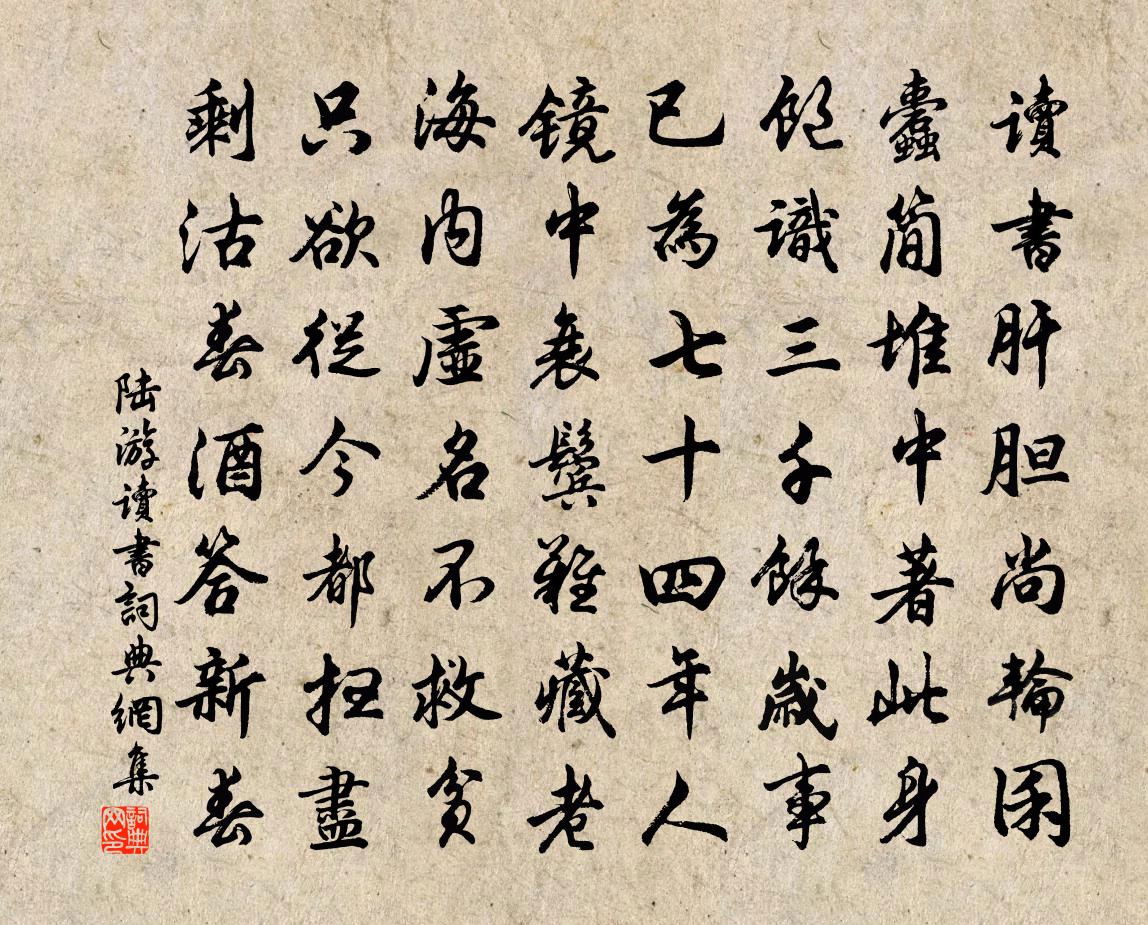 讀書肝胆尚輪囷
蠹簡堆中著此身
飽識三千餘歲事
已為七十四年人
鏡中衰鬢難藏老
海內虛名不救貧
只欲從今都掃盡
剩沽春酒答新春
陆游讀書詞典網集
詞典网印